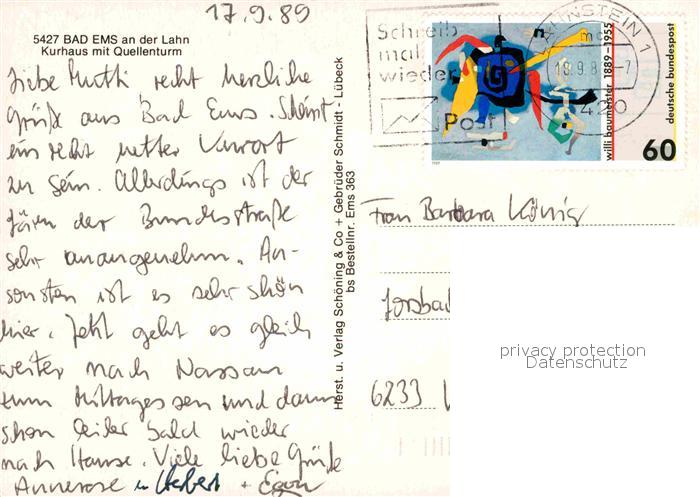 17.9.89
5427 BAD EMS an der Lahn
Kurhaus mit Quellenturm
Liebe Mutti, recht herzliche
Grüße aus Bad Ems. Scheint
ein recht netter Kurort
zu sein. Allerdings ist der
Lärm der Bundesstraße
sehr unangenehm. An-
sonsten ist es sehr schön
hier. Jetzt geht es gleich
weiter nach Nassau
zum Mittagessen und dann
schon leider bald wieder
nach Hause. Viele liebe Grüße
Annerose + Egon
Herst. u. Verlag Schöning & Co + Gebrüder Schmidt - Lübeck
bs Bestellnr. Ems 363
Schreib
mal
wieder
Post
LAHNSTEIN 1
18.9.8 -7
5420
willi baumeister 1889-1955
deutsche bundespost
60
Frau Barbara König
6233
privacy protection
Datenschutz